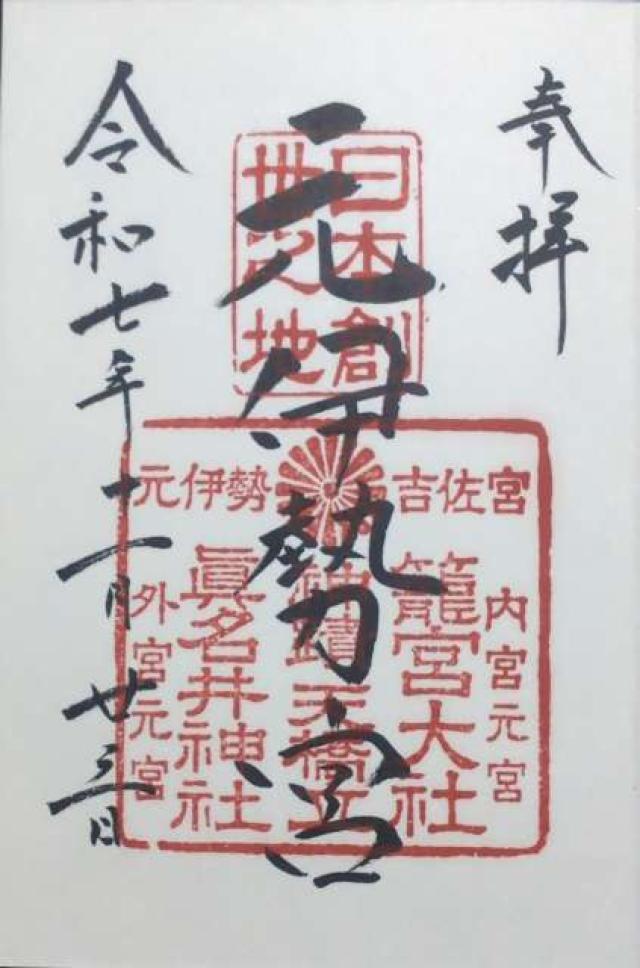 奉拝
元伊勢宮
令和七年十一月廿三日
日本創
世之地
元伊勢 吉佐宮
内宮元宮
籠宮大社
神蹟 天橋立
眞名井神社
外宮元宮